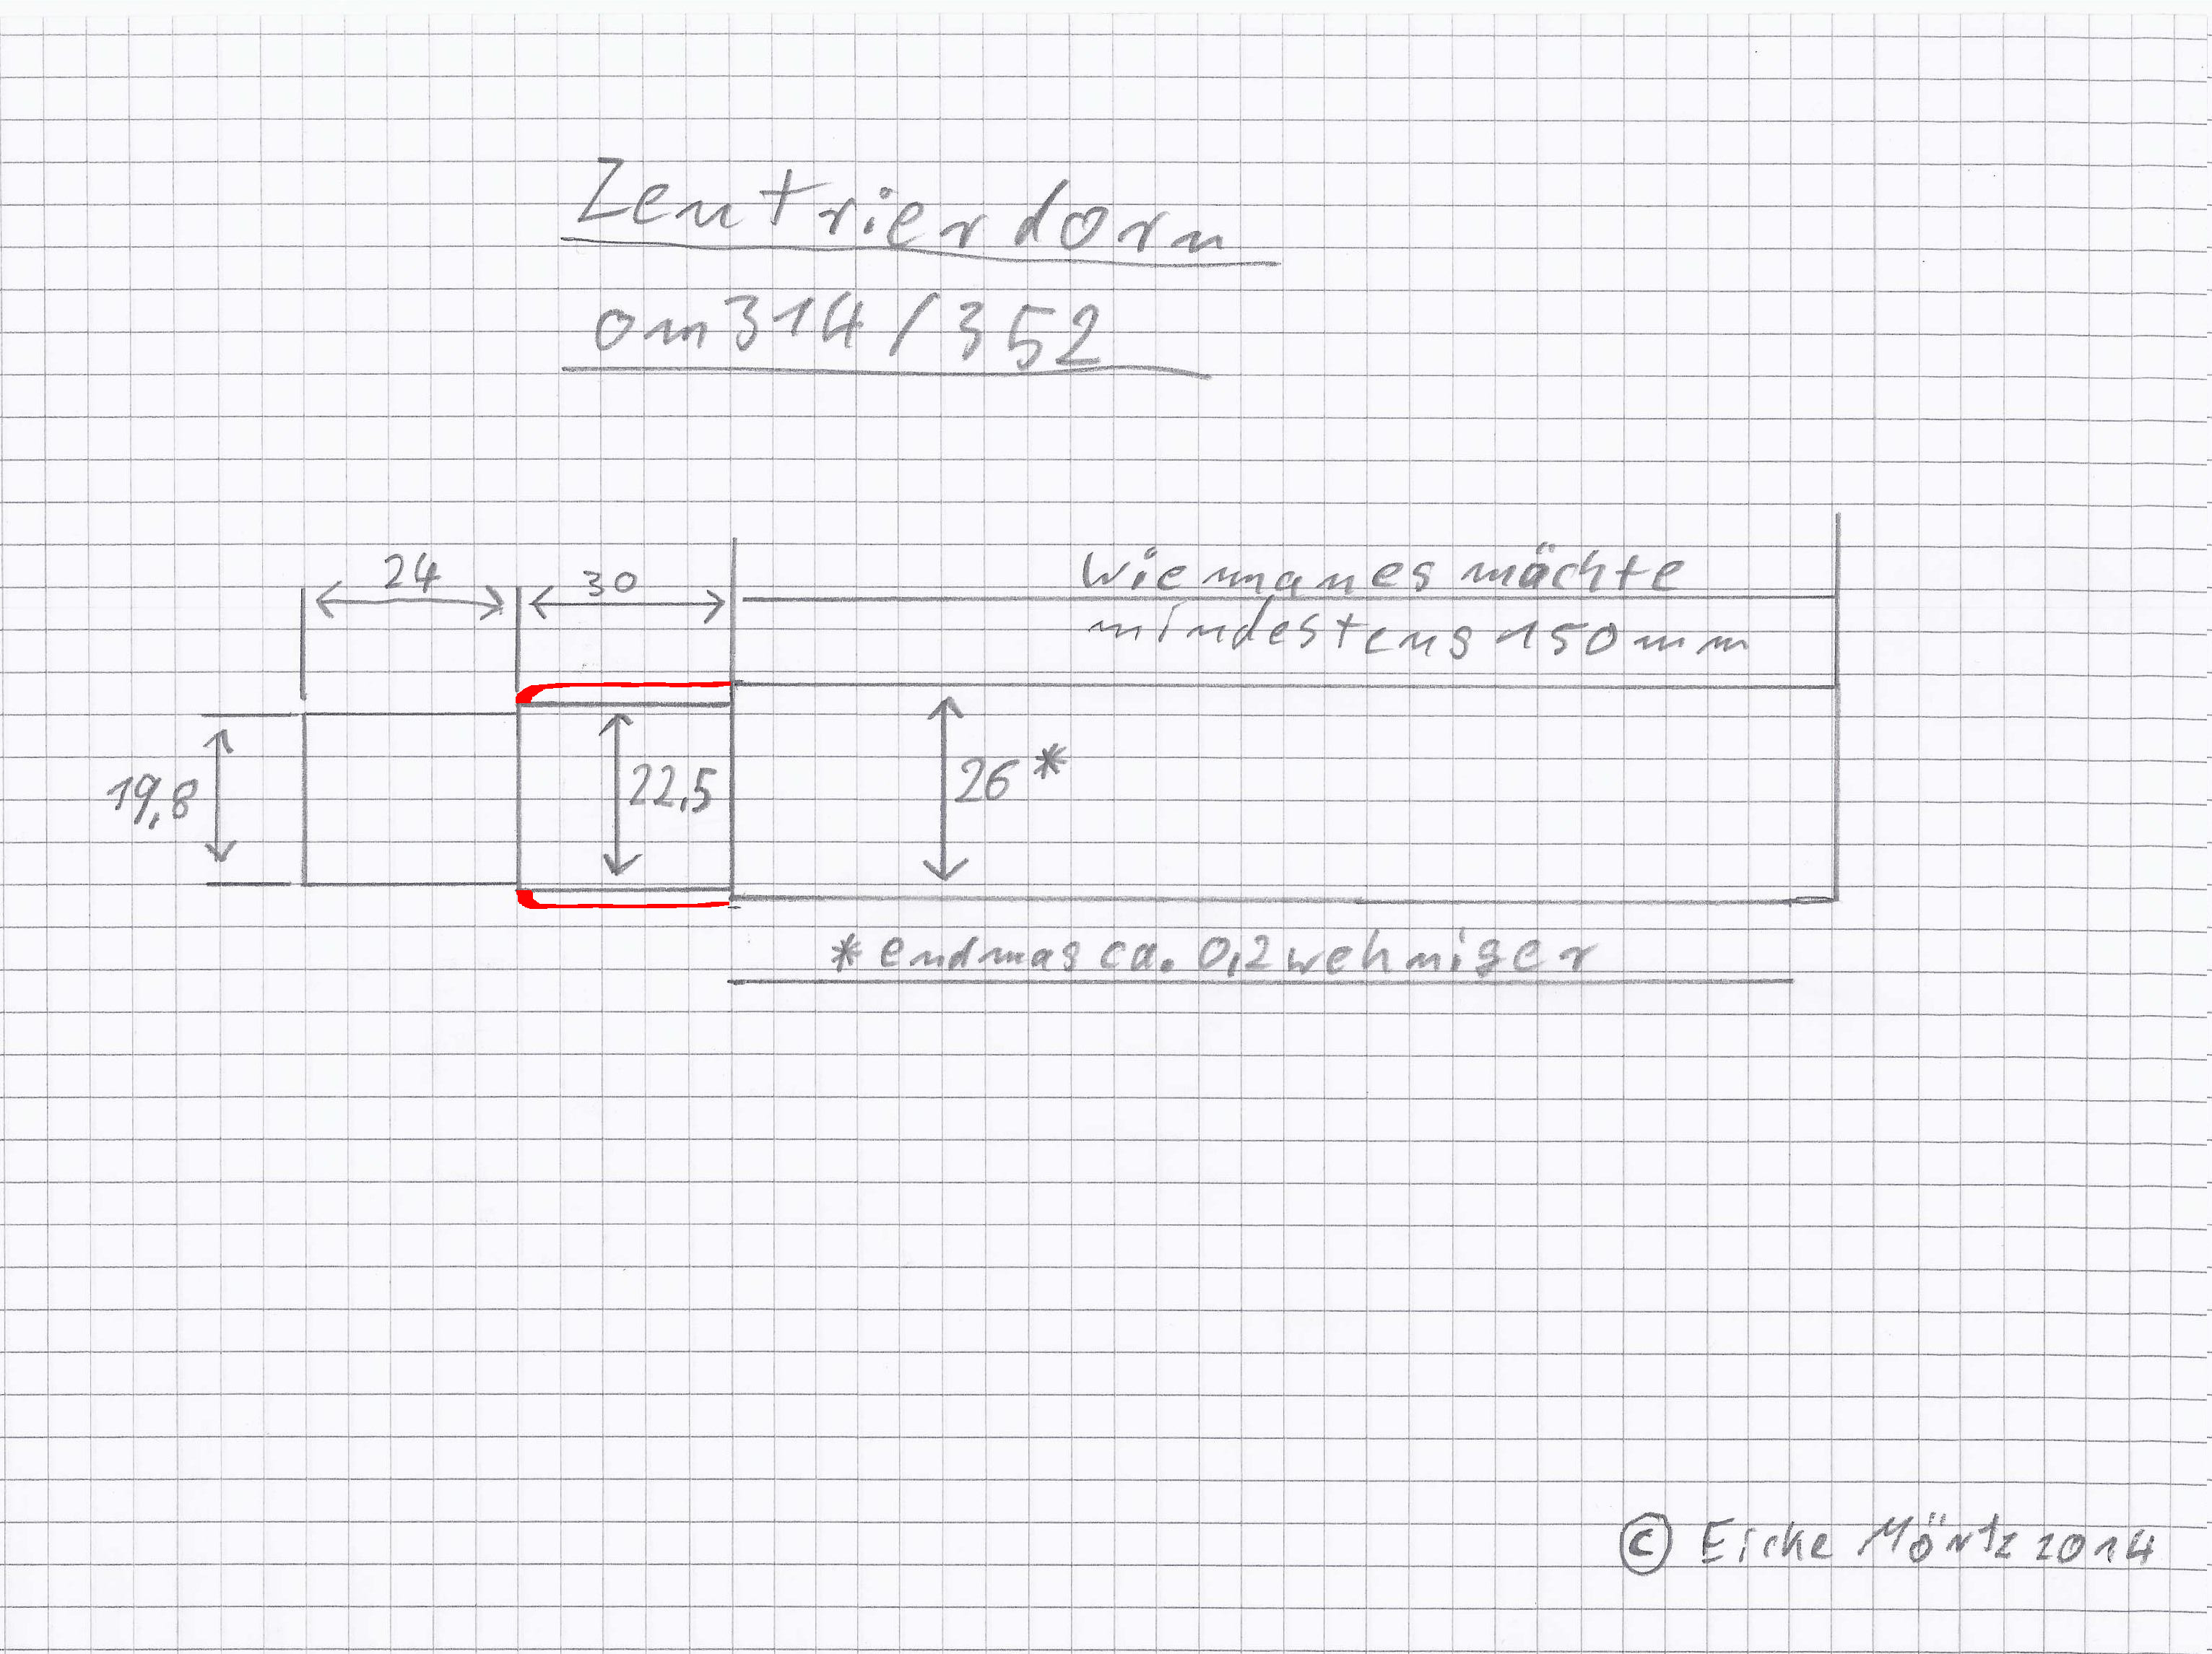 Zentrierdorn
om314/352
24
30
wie man es mächte
mindestens 150mm
19,8
22,5
26*
* endmas ca. 0,2 wehniger
© Eicke Mörtz 2014